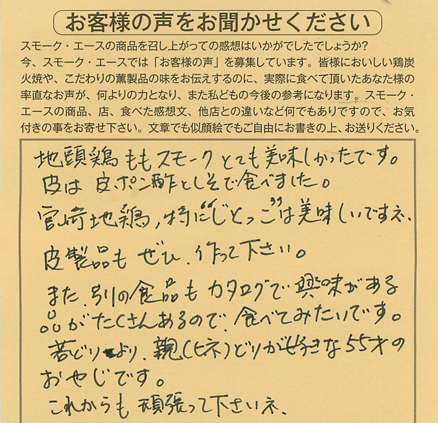 お客様の声をお聞かせください
スモーク・エースの商品を召し上がっての感想はいかがでしたでしょうか?
今、スモーク・エースでは「お客様の声」を募集しています。皆様においしい鶏炭
火焼や、こだわりの薫製品の味をお伝えするのに、実際に食べて頂いたあなた様の
率直なお声が、何よりの力となり、また私どもの今後の参考になります。スモーク・
エースの商品、店、食べた感想文、他店との違いなど何でもありですので、お気
付きの事をお寄せ下さい。文章でも似顔絵でもご自由にお書きの上、お送りください。
地頭鶏ももスモークとても美味しかったです。
皮は皮ポン酢としそで食べました。
宮崎地鶏,特に"じとっこ"は美味しいですネ、
皮製品もぜひ、作って下さい。
また、別の食品もカタログで興味がある
品がたくさんあるので、食べてみたいです。
若どりより、親(ヒネ)どりが好きな55才の
おやじです。
これからも頑張って下さいネ、